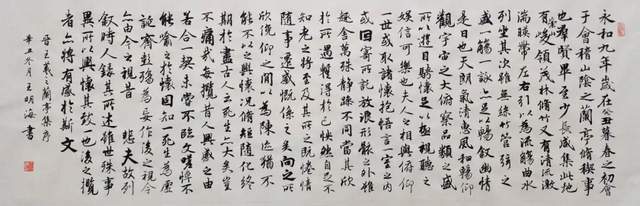 永和九年歲在癸丑暮春之初會
于會稽山陰之蘭亭脩稧事
也羣賢畢至少長咸集此地
有崇山峻領茂林脩竹又有清流激
湍暎帶左右引以為流觴曲水
列坐其次雖無絲竹管弦之
盛一觴一詠亦足以暢叙幽情
是日也天朗氣清惠風和暢仰
觀宇宙之大俯察品類之盛
所以遊目騁懷足以極視聽之
娛信可樂也夫人之相與俯仰
一世或取諸懷抱悟言一室之內
或因寄所託放浪形骸之外雖
趣舍萬殊靜躁不同當其欣
於所遇蹔得於己快然自足不
知老之將至及其所之既惓情
隨事遷感慨係之矣向之所
欣俛仰之閒以為陳迹猶不
能不以之興懷況脩短隨化終
期於盡古人云死生亦大矣豈
不痛哉每攬昔人興感之由
若合一契未嘗不臨文嗟悼不
能喻之於懷固知一死生為虛
誕齊彭殤為妄作後之視今
亦由今之視昔 悲夫故列
叙時人錄其所述雖世殊事
異所以興懷其致一也後之攬
者亦將有感於斯文
晉王羲之蘭亭集序
辛丑冬月王明海書